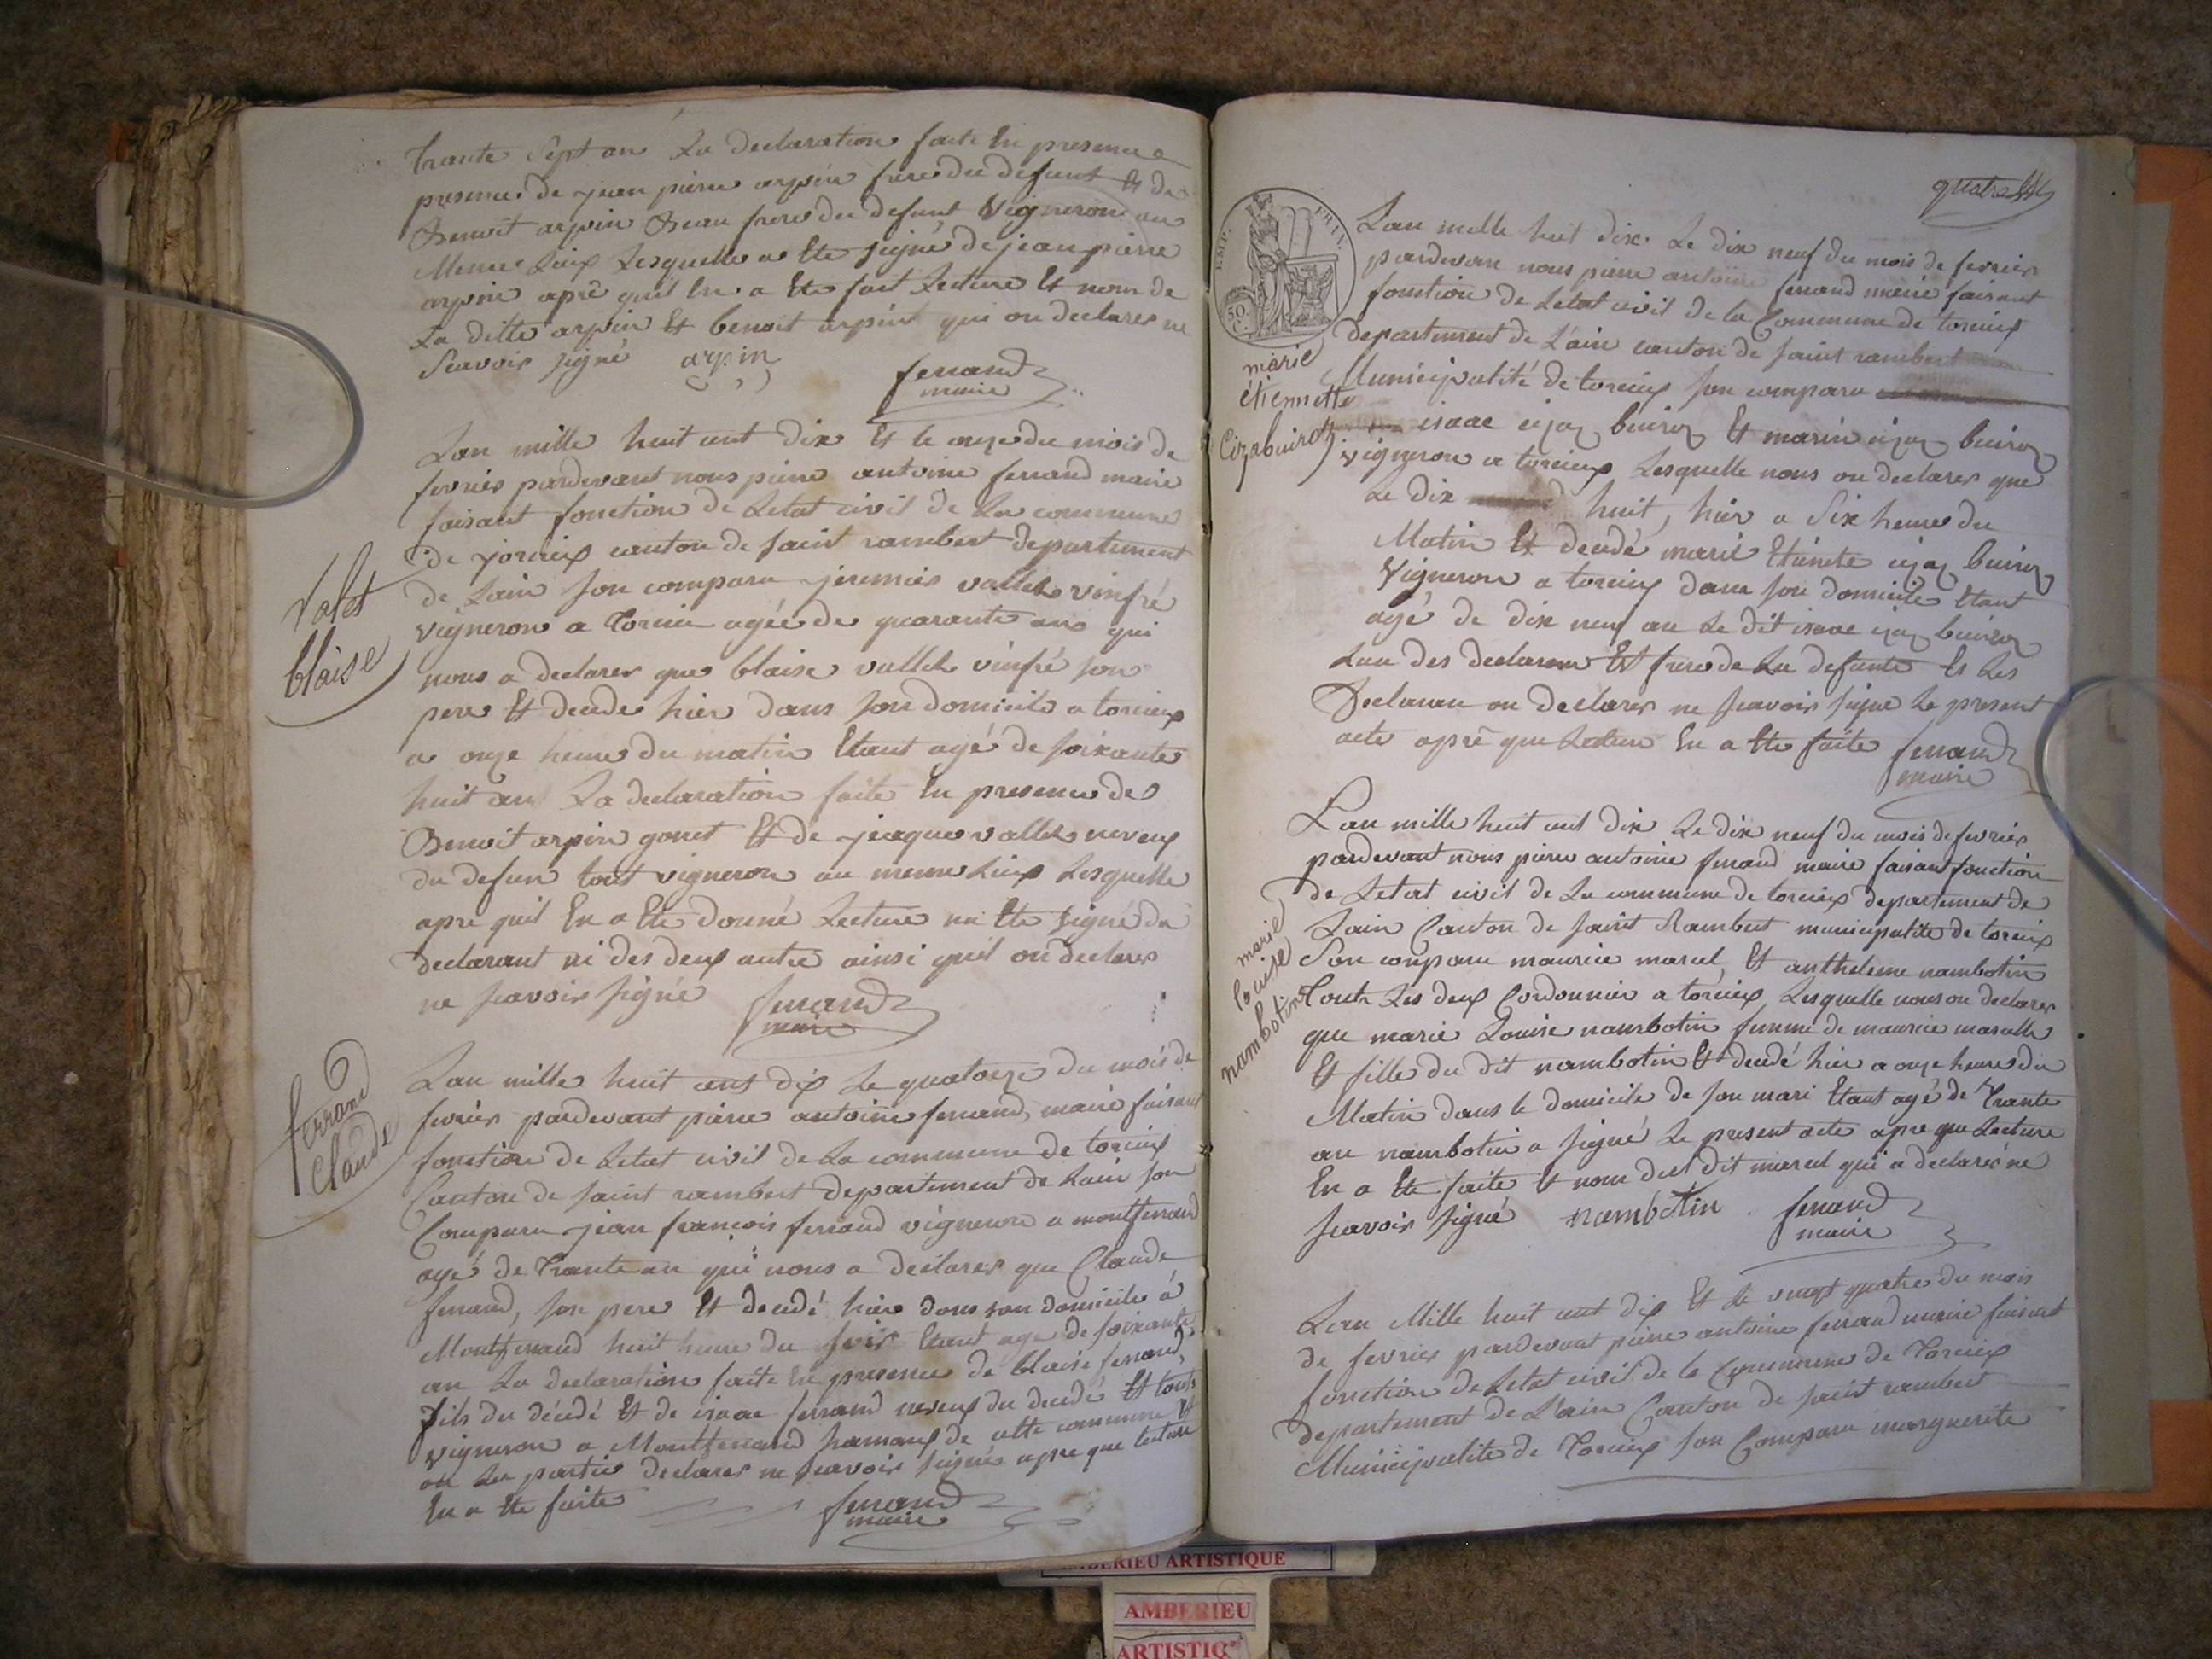 trante Sept an La declaration faite En presence
presence de jean pierre arpin frere du defunt Et de
Benoit arpin Beau frere du defunt Vigneron au
Meme Lieux Lesquelle a Ete signé de jean pierre
arpin apré quil En a Ete fait Lecture Et nom de
La ditte arpin Et benoit arpin qui on declarer ne
Scavoir signé arpin
ferrand
maire
Lan mille huit cent dix Et le onze du mois de
fevrier pardevant nous pierre antoine ferrand maire
faisant fonction de Letat civil de La commune
de torcieux canton de saint rambert departement
de Lain son comparu jeremie vallet vinfré
vigneron a Torcieu agée de quarante ans qui
nous a declarer que blaise vallet vinfré son
pere Et decede hier dans son domicile a torcieux
a onze heure du matin Etant agé de soixante
huit an La declaration faite En presence de
Benoit arpin gonet Et de jacque vallet neveux
du defun tout vigneron au meme Lieux Lesquelle
apre quil En a Ete donné Lecture na Ete signé du
declarant ni des deux autre ainsi quil on declarer
ne scavoir signé ferrand
maire
valet
blaise
Lan mille huit cent dix Le quatorze du mois de
fevrier pardevant pierre antoine ferrand, maire faisant
fonction de Letat civil de La commune de torcieux
Canton de saint rambert departement de Lain son
Comparu jean francois ferrand vigneron a montferrand
agé de Trante an qui nous a declarer que Claude
ferrand, son pere Et decedé hier dans son domicile á
Montferrand huit heure du soir Etant age de soixante
an La declaration faite En presence de blaise ferrand,
fils du décédé Et de isaac ferrand neveux du decedé Et touts
vigneron a Montferrand hamaux de cette commune Et
on Les partie declarer ne scavoir signée apre que lecture
En a Ete faite ferrand
maire
ferrand
Claude
EMP. FRAN.
50 C.
Lan mille huit dix Le dix neuf du mois de fevrier
pardevan nous pierre antoine ferrand maire faisant
fonction de Letat civil de la Commune de torcieux
departement de L'ain canton de saint rambert
Municipalité de torcieux son comparu
isaac cizaz buiroz Et marin cizaz buiroz
vigneron a torcieux Lesquelle nous on declarer que
Le dix huit, hier a Six heure du
Matin Et decedé marie Etienete cizaz buiroz
Vigneron a torcieux dans son domicile Etant
agé de dix neuf an Le dit isaac cizaz buiroz
Lun des declaran Et frere de La defunte Et Les
Declaran on declarer ne scavoir signe Le present
acte aprê que Lecture En a Ete faite ferrand
maire
marie
étiennette
Cizabuiroz
Lan mille huit cent dix Le dix neuf du mois de fevrier
pardevant nous pierre antoine ferrand maire faisant fonction
de Letat civil de La commune de torcieux departement de
Lain Canton de saint Rambert municipalite de torcieux
Son comparu maurice marcel, Et anthelme nambotin
Toute Les deux Cordonnier a torcieux, Lesquelle nous on declarer
que marie Louise nambotin femme de maurice marcelle
Et fille du dit nambotin Et decedé hier a onze heure du
Matin dans le domicile de son mari Etant agé de Trante
an nambotin a signé Le present acte apre que Lecture
En a Ete faite Et nom du dit marcel qui a declarer né
scavoir signé nambotin ferrand
maire
marie
louise
nambotin
Lan Mille huit cent dix Et le vingt quatre du mois
de fevrier pardevant pierre antoine ferrand maire faisant
fonction de Letat civil de la Commune de Torcieux
departement de L'ain Canton de saint rambert
Municipalite de Torcieux son Comparu marguerite
AMBERIEU ARTISTIQUE
AMBERIEU
ARTISTIQ